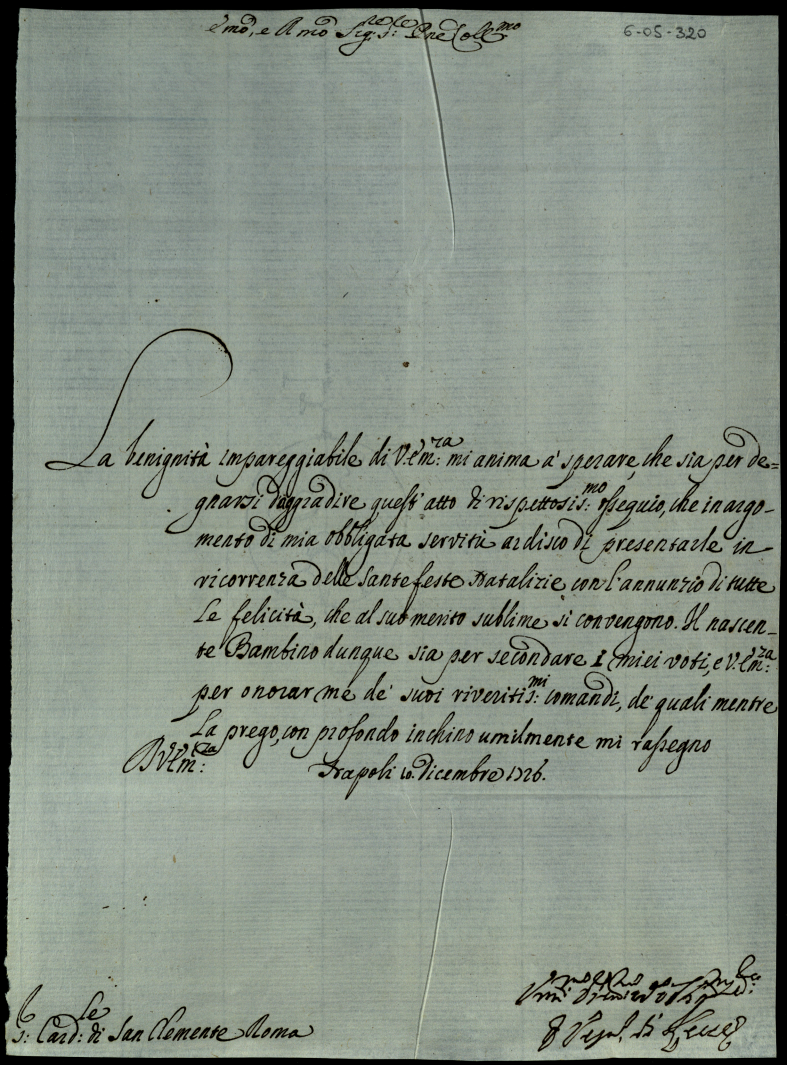 Emo, e Rmo Sig:r S:r Pne Coll:mo
6-05-320
La benignità impareggiabile di V:Em:za mi anima a' sperare, che sia per de=
gnarsi d'aggradire quest'atto di rispettosis:mo ossequio, che in argo-
mento di mia obbligata servitù ardisco di presentarle in
ricorrenza delle Sante feste Natalizie con l'annunzio di tutte
le felicità, che al suo merito sublime si convengono. Il nascen-
te Bambino dunque sia per secondare i miei voti, e V:Em:za
per onorar me de' suoi riveritis:mi comandi, de' quali mentre
La prego, con profondo inchino umilmente mi rassegno
D V:Em:za
Napoli 10. Dicembre 1726.
S: Card:le di San Clemente Roma